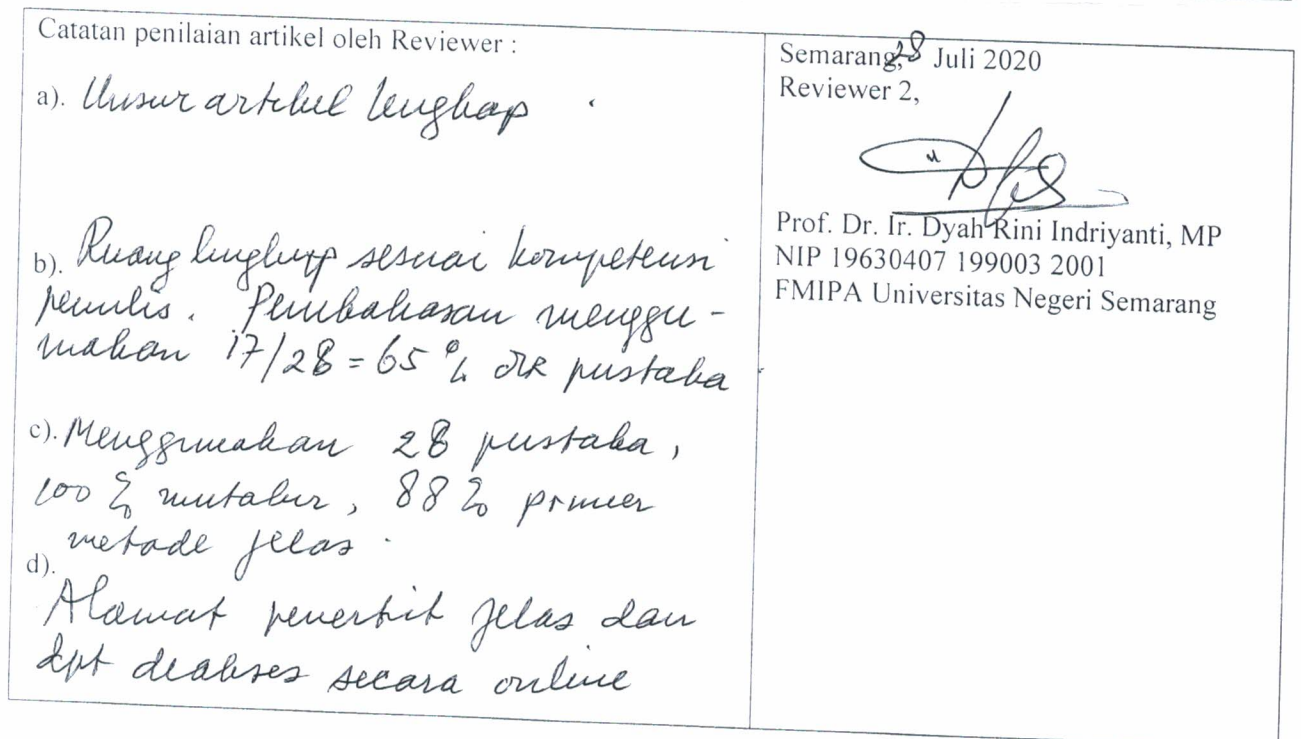 Catatan penilaian artikel oleh Reviewer :
a). Unsur artikel lengkap .
b). Ruang lingkup sesuai kompetensi
penulis. Pembahasan menggu-
nakan 17/28 = 65 % pustaka
c). Menggunakan 28 pustaka,
100 % mutakhir, 88 % primer
metode jelas.
d).
Alamat penerbit jelas dan
dpt diakses secara online
Semarang, 28 Juli 2020
Reviewer 2,
Prof. Dr. Ir. Dyah Rini Indriyanti, MP
NIP 19630407 199003 2001
FMIPA Universitas Negeri Semarang